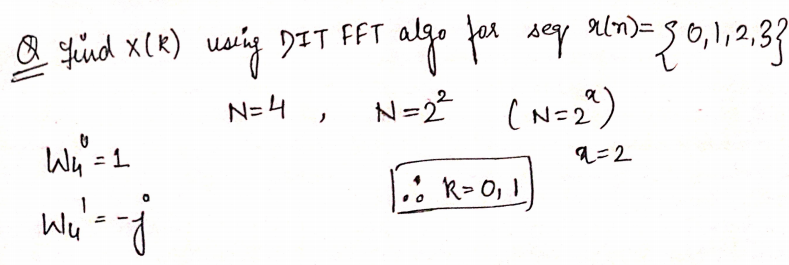 Q find X(k) using DIT FFT algo for seq x(n)= {0,1,2,3}
N=4 , N=2² (N=2ˣ)
W₄⁰ = 1 x=2
∴ k=0,1
W₄¹ = -j